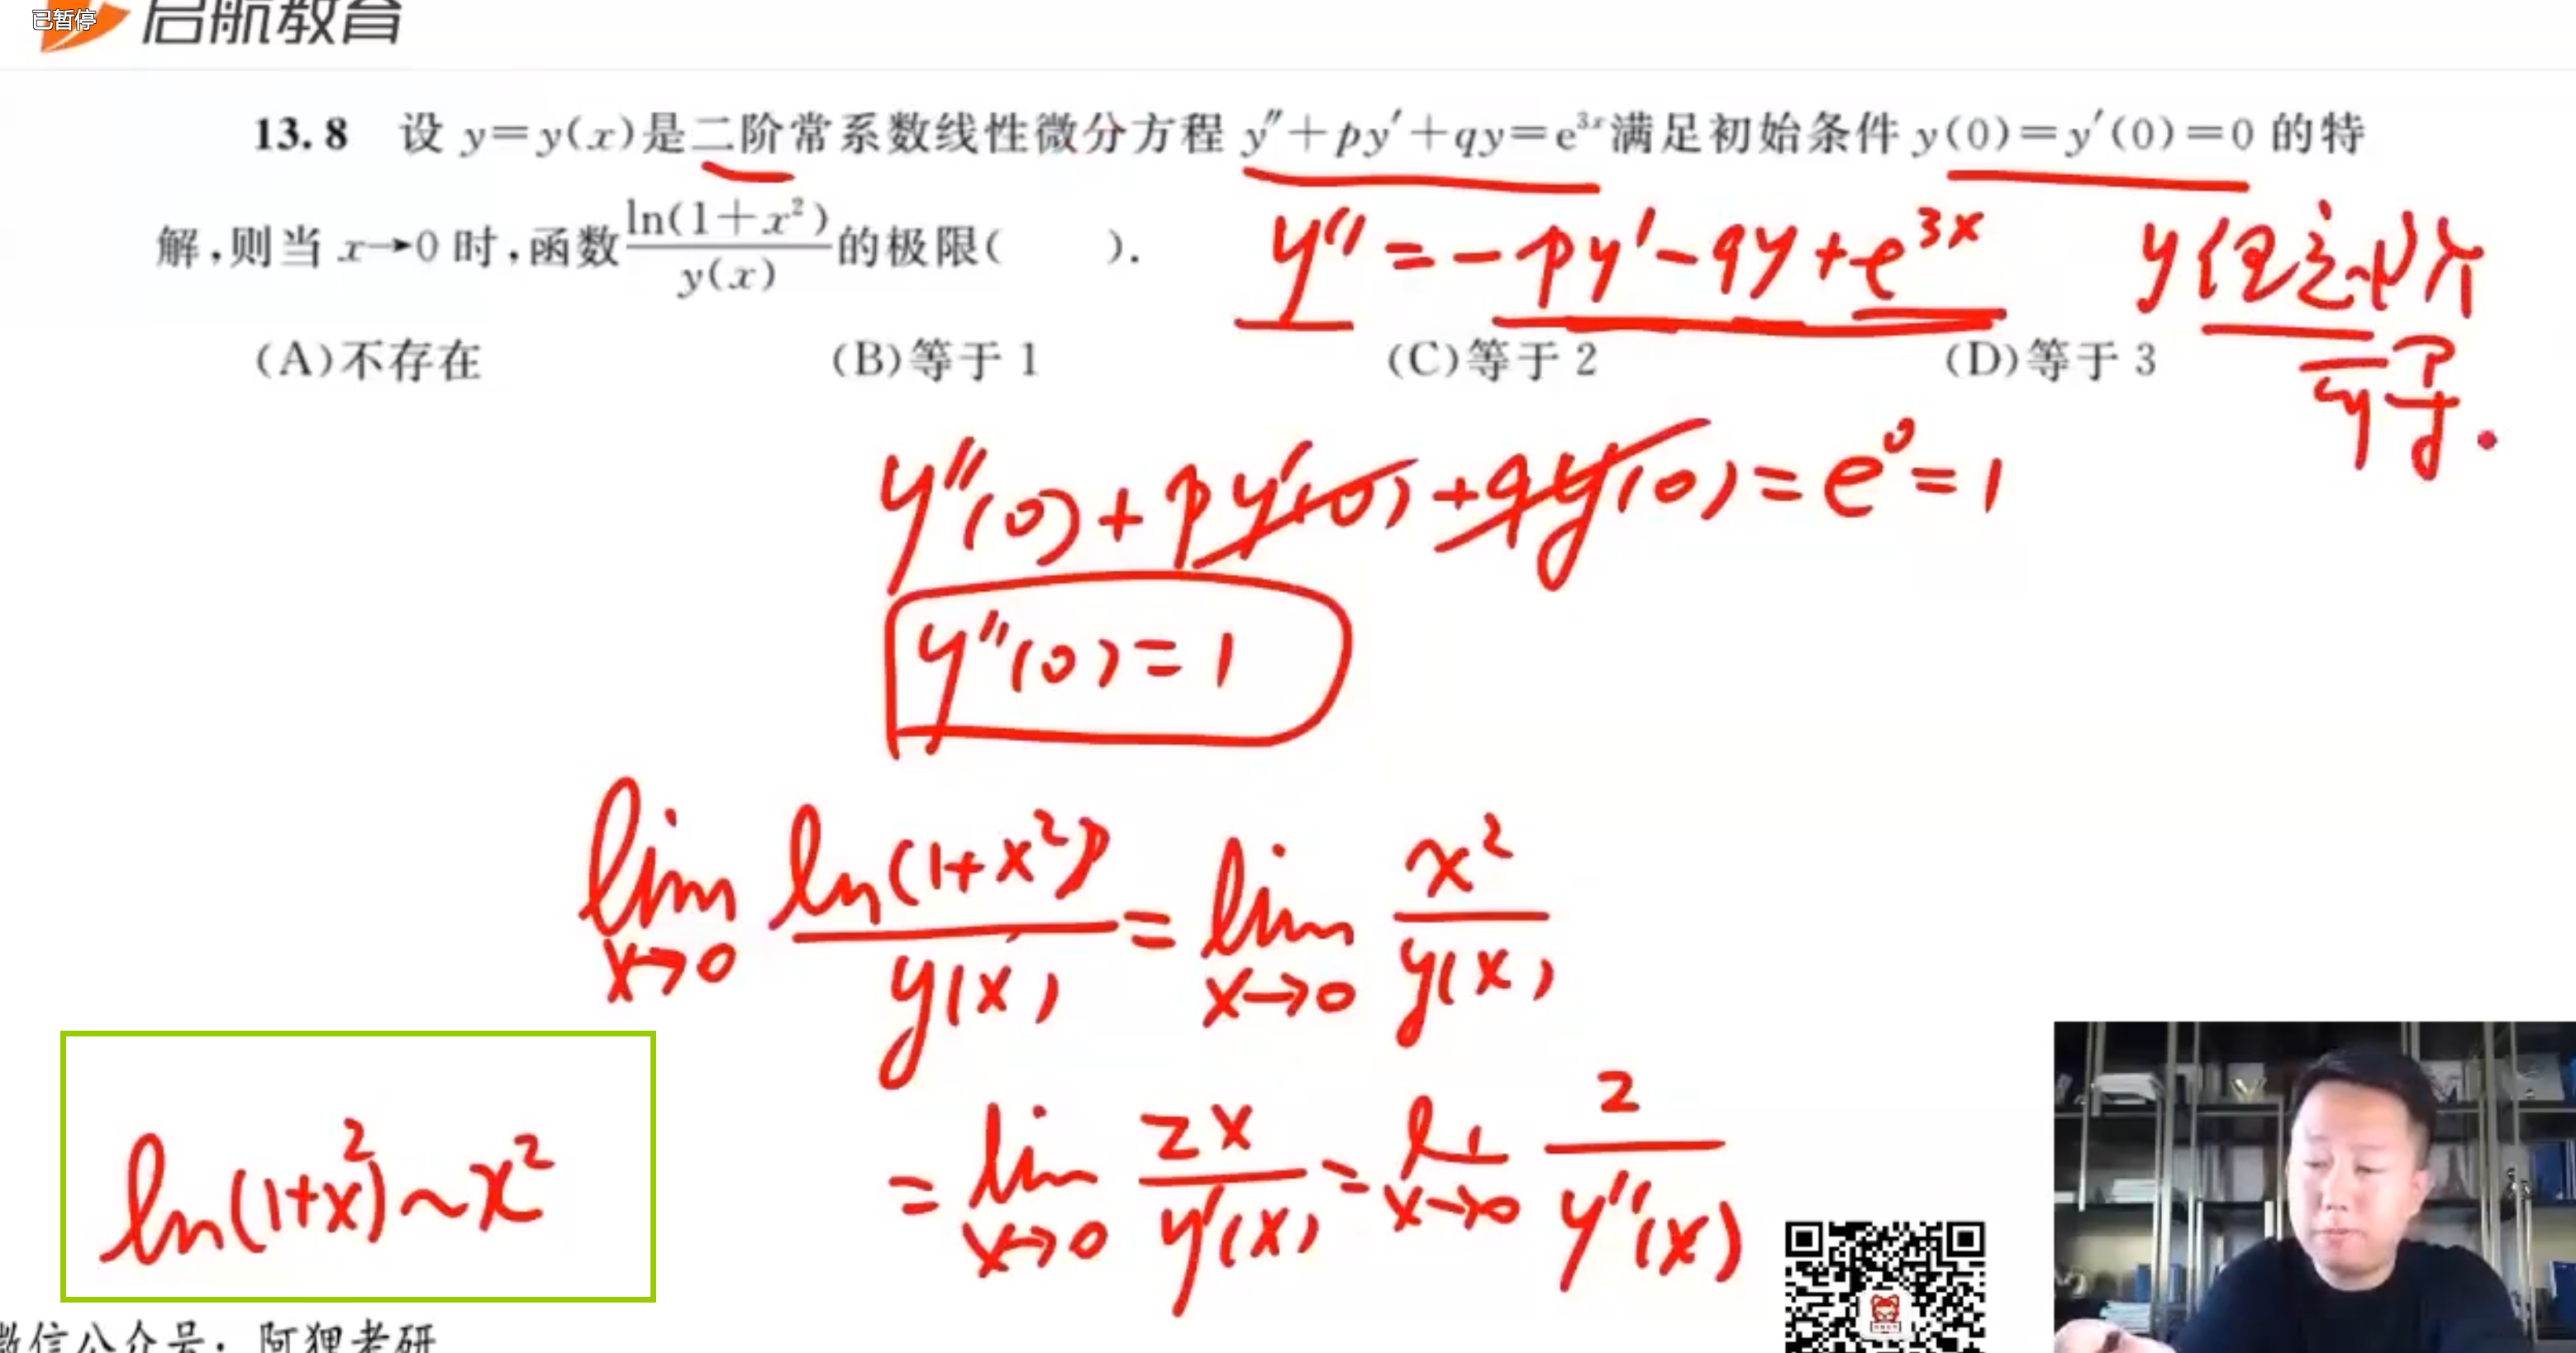 已暂停
启航教育
13.8 设 y=y(x)是二阶常系数线性微分方程 y″+py′+qy=e³ˣ满足初始条件 y(0)=y′(0)=0 的特
解,则当 x→0 时,函数 ln(1+x²)/y(x) 的极限( ).
y″ = -py′-qy+e³ˣ
(A)不存在 (B)等于 1 (C)等于 2 (D)等于 3
y″(0)+py′(0)+qy(0)=e⁰=1
y″(0)=1
lim x→0 ln(1+x²)/y(x) = lim x→0 x²/y(x)
= lim x→0 2x/y′(x) = lim x→0 2/y″(x)
ln(1+x²)~x²
微信公众号：阿狸考研